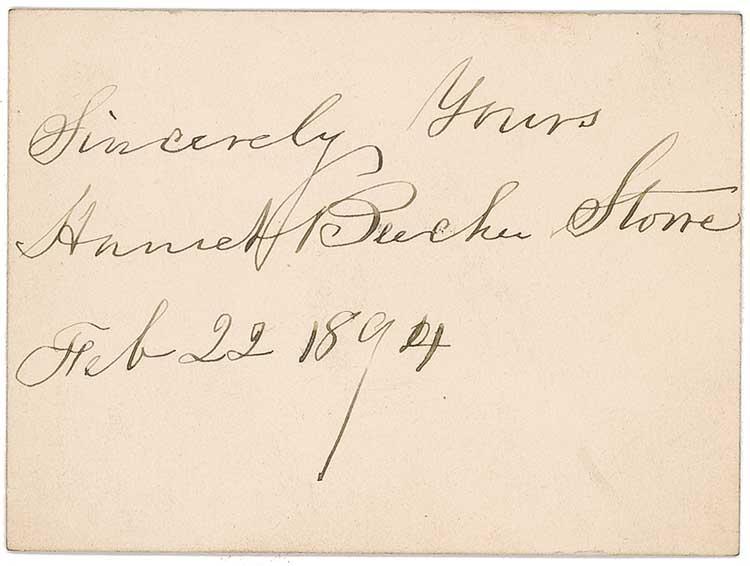 Sincerely Yours
Harriet Beecher Stowe
Feb 22 1894